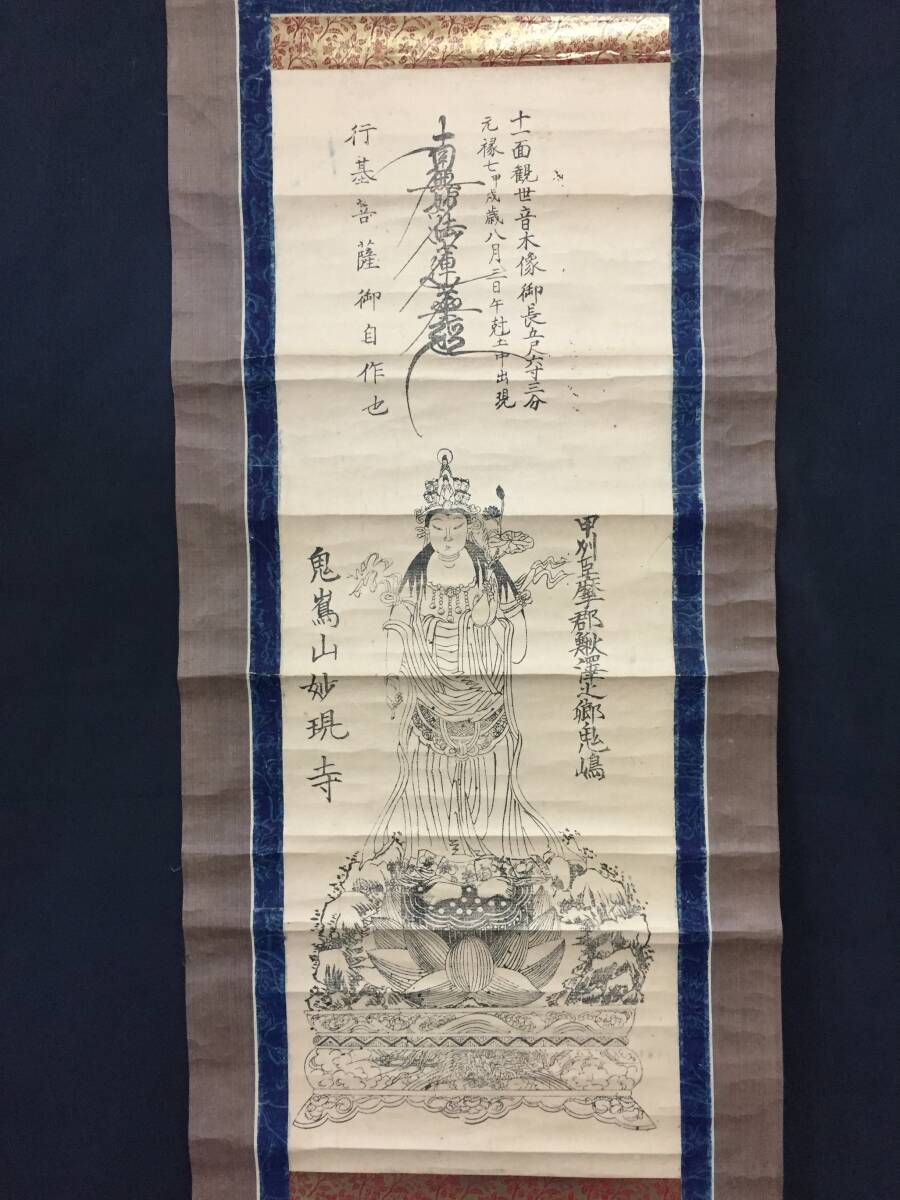 十一面觀世音木像御長五尺六寸三分
元禄七甲戌歳八月三日午尅土中出現
南無妙法蓮華経
行基菩薩御自作也
甲刕巨摩郡鰍澤之郷鬼嶋
鬼嶌山妙現寺